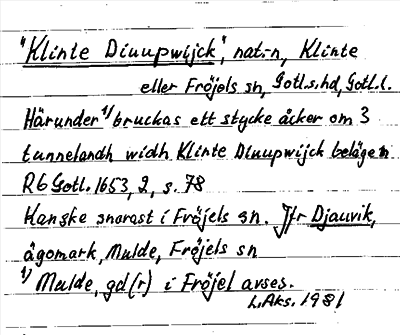 "Klinte Diuupwijck", nat.-n, Klinte
eller Fröjels sn, Gotl.s.hd, Gotl.l.
Härunder 1/ bruckas ett stycke åcker om 3
tunnelandh widh Klinte Diuupwijck belägen
RG Gotl. 1653, 2, s. 78
Kanske snarast i Fröjels sn. Jfr Djauvik,
ägomark, Mulde, Fröjels sn
1/ Mulde, gd(r) i Fröjel avses.
L.Aks. 1981